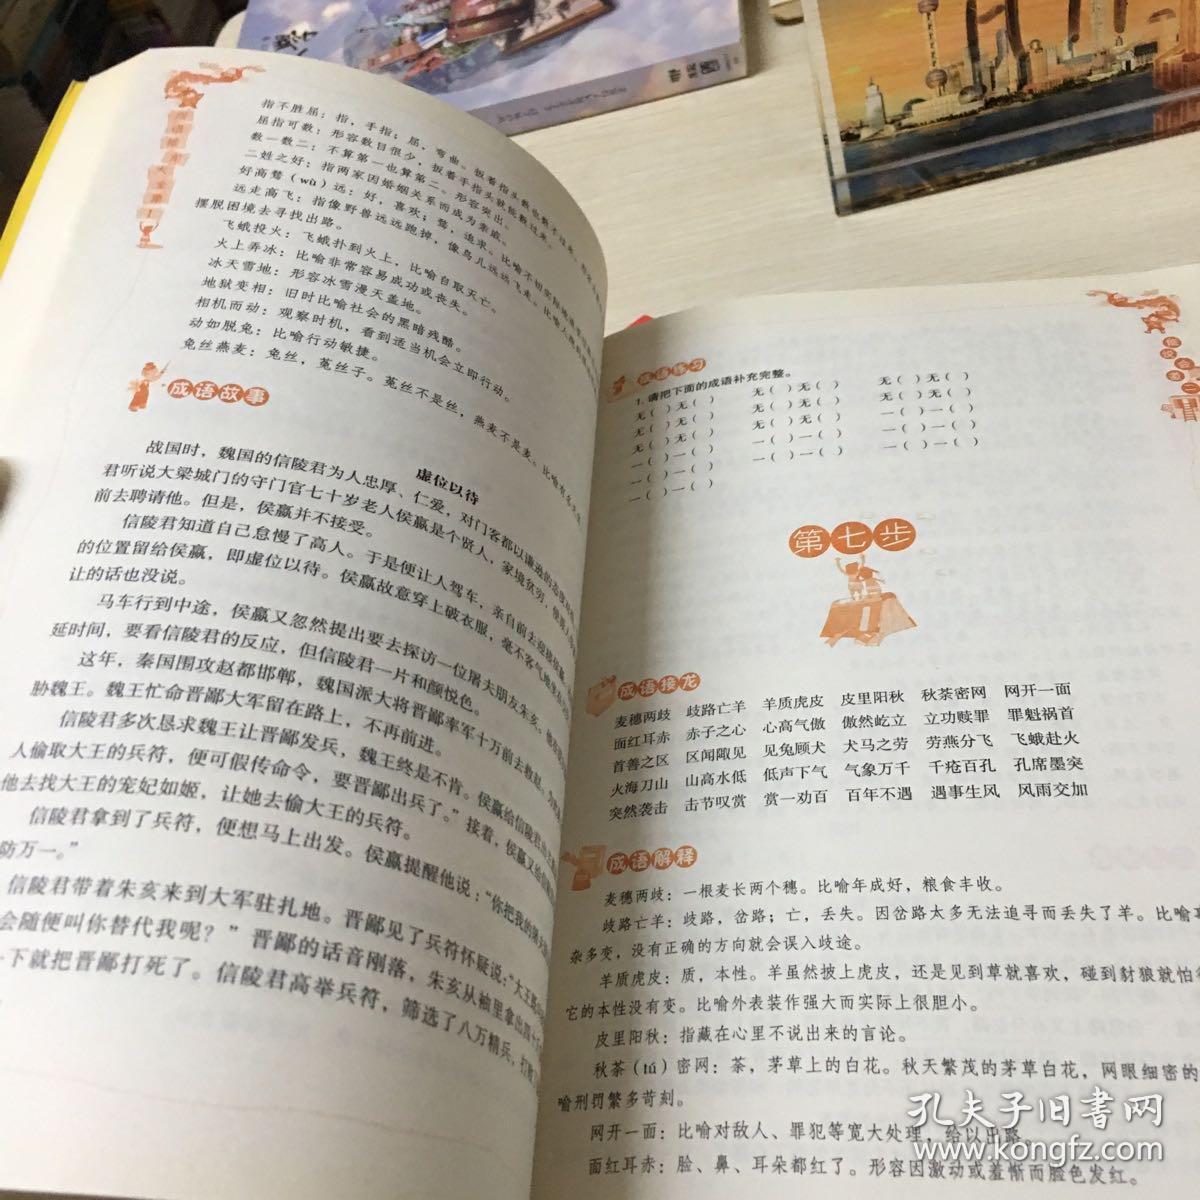 指不胜屈：指，手指；屈，弯曲。扳着指头数也数不过来。
屈指可数：形容数目很少，扳着手指头就能数过来。
数一数二：不算第一也算第二。形容突出。
二姓之好：指两家因婚姻关系而成为亲戚。
好高骛（wù）远：好，喜欢；骛，追求。比喻不切实际地追求
远走高飞：指像野兽远远跑掉，像鸟儿远远飞走。比喻人
摆脱困境去寻找出路。
飞蛾投火：飞蛾扑到火上，比喻自取灭亡。
火上弄冰：比喻非常容易成功或丧失。
冰天雪地：形容冰雪漫天盖地。
地狱变相：旧时比喻社会的黑暗残酷。
相机而动：观察时机，看到适当机会立即行动。
动如脱兔：比喻行动敏捷。
兔丝燕麦：兔丝，菟丝子。菟丝不是丝，燕麦不是麦。比喻有名无
成语故事
虚位以待
战国时，魏国的信陵君为人忠厚、仁爱，对门客都以谦逊的态度
君听说大梁城门的守门官七十岁老人侯嬴是个贤人，家境贫穷，便派人
前去聘请他。但是，侯嬴并不接受。
信陵君知道自己怠慢了高人。于是便让人驾车，亲自前去迎接侯嬴
的位置留给侯嬴，即虚位以待。侯嬴故意穿上破衣服，毫不客气地坐
让的话也没说。
马车行到中途，侯嬴又忽然提出要去探访一位屠夫朋友朱亥。他
延时间，要看信陵君的反应，但信陵君一片和颜悦色。
这年，秦国围攻赵都邯郸，魏国派大将晋鄙率军十万前去救赵。
胁魏王。魏王忙命晋鄙大军留在路上，不再前进。
信陵君多次恳求魏王让晋鄙发兵，魏王终是不肯。侯嬴给信陵君
人偷取大王的兵符，便可假传命令，要晋鄙出兵了。”接着，侯嬴又给信
他去找大王的宠妃如姬，让她去偷大王的兵符。
信陵君拿到了兵符，便想马上出发。侯嬴提醒他说：“你把我的
防万一。”
信陵君带着朱亥来到大军驻扎地。晋鄙见了兵符怀疑说：“大王
会随便叫你替代我呢？”晋鄙的话音刚落，朱亥从袖里拿出四十
下就把晋鄙打死了。信陵君高举兵符，筛选了八万精兵，打
成语练习
1. 请把下面的成语补充完整。
无（ ）无（ ） 无（ ）无（ ） 无（ ）无（ ）
无（ ）无（ ） 无（ ）无（ ） 无（ ）无（ ）
无（ ）无（ ） 无（ ）无（ ） 一（ ）一（ ）
一（ ）一（ ） 一（ ）一（ ） 一（ ）一（ ）
一（ ）一（ ）
第七步
成语接龙
麦穗两歧 歧路亡羊 羊质虎皮 皮里阳秋 秋荼密网 网开一面
面红耳赤 赤子之心 心高气傲 傲然屹立 立功赎罪 罪魁祸首
首善之区 区闻陬见 见兔顾犬 犬马之劳 劳燕分飞 飞蛾赴火
火海刀山 山高水低 低声下气 气象万千 千疮百孔 孔席墨突
突然袭击 击节叹赏 赏一劝百 百年不遇 遇事生风 风雨交加
成语解释
麦穗两歧：一根麦长两个穗。比喻年成好，粮食丰收。
歧路亡羊：歧路，岔路；亡，丢失。因岔路太多无法追寻而丢失了羊。比喻事
杂多变，没有正确的方向就会误入歧途。
羊质虎皮：质，本性。羊虽然披上虎皮，还是见到草就喜欢，碰到豺狼就怕得
它的本性没有变。比喻外表装作强大而实际上很胆小。
皮里阳秋：指藏在心里不说出来的言论。
秋荼（tú）密网：荼，茅草上的白花。秋天繁茂的茅草白花，网眼细密的
喻刑罚繁多苛刻。
网开一面：比喻对敌人、罪犯等宽大处理，给以出路。
面红耳赤：脸、鼻、耳朵都红了。形容因激动或羞惭而脸色发红。
孔夫子旧书网
www.kongfz.com